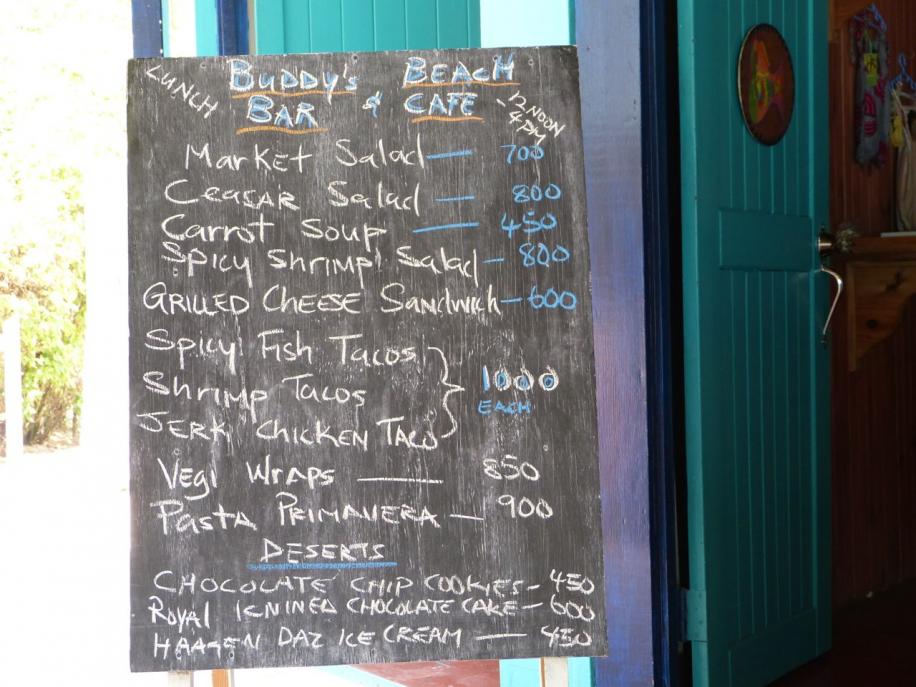 LUNCH
BUDDY's BEACH
BAR & CAFE
12 NOON
4 PM
Market Salad — 700
Ceasar Salad — 800
Carrot Soup — 450
Spicy Shrimp Salad — 800
GRILLED CHEESE Sandwich — 600
Spicy Fish Tacos
Shrimp Tacos } 1000
EACH
JERK CHICKEN TACO
VEGI WRAPS — 850
Pasta PRIMAVERA — 900
DESERTS
CHOCOLATE CHIP COOKIES - 450
ROYAL CHOCOLATE CAKE - 600
HAAGEN DAZ ICE CREAM — 450